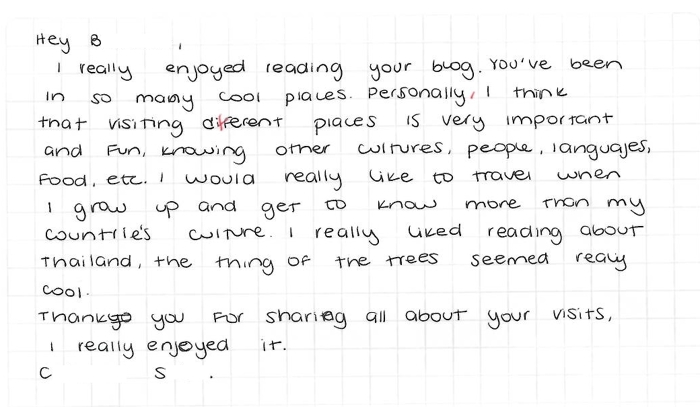 Hey B
I really enjoyed reading your blog. You've been
in so many cool places. Personally, I think
that visiting diferent places is very important
and fun, knowing other cultures, people, languajes,
food, etc. I would really like to travel when
I grow up and get to know more than my
countrie's culture. I really liked reading about
Thailand, the thing of the trees seemed realy
cool.
Thank you for sharing all about your visits,
I really enjoyed it.
C S.